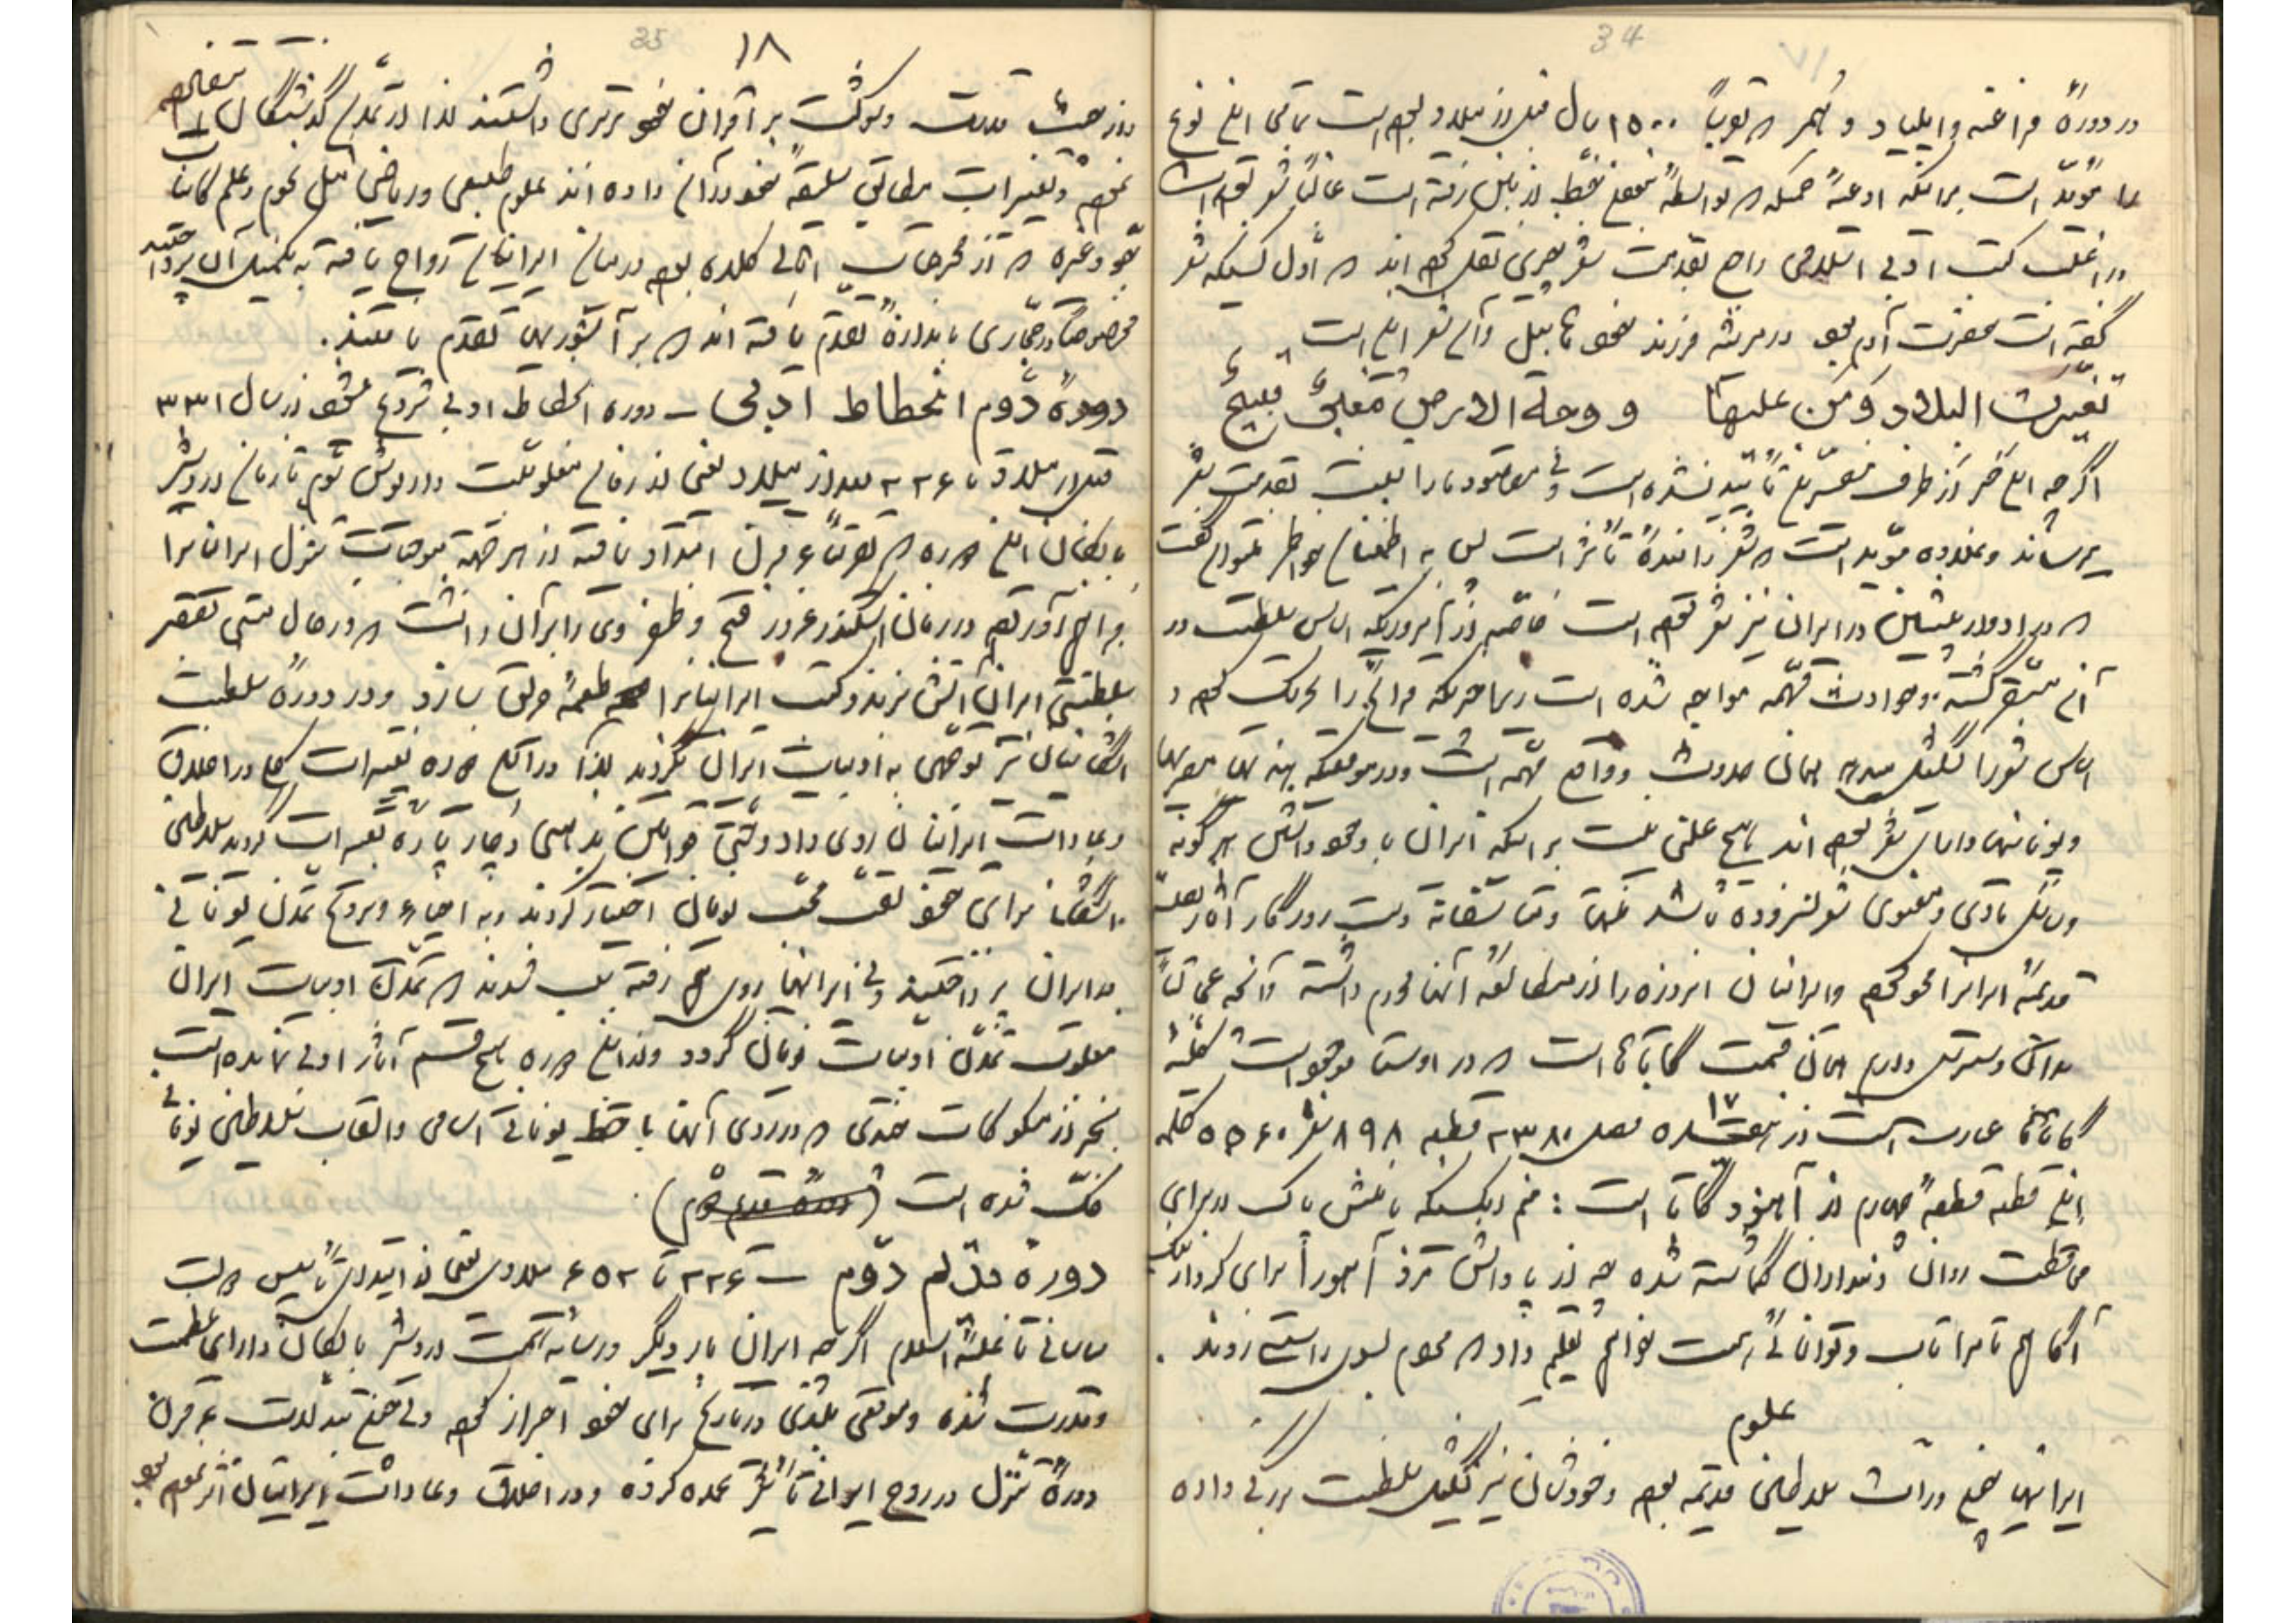 34
در دورهٔ فراعنه و ایلیاد و که تقریباً ۱۵۰۰ سال قبل از میلاد بوده است تمامی این نوع
مؤید است بر اینکه ادعیهٔ که بواسطهٔ خط از بین رفته است غالباً شعر بوده است
در اغلب کتب ادبی اسلامی راجع بقدمت شعر چیزی نقل کرده اند که اول کسیکه شعر
گفته است حضرت آدم بود در مرثیه فرزند خود هابیل و آن شعر این است
تغیرت البلاد و من علیها و وجه الارض مغبر قبیح
اگرچه این خبر از طرف تأیید نشده است ولی مقصود ما را بقدمت شعر
میرساند و بعلاوه مؤید است که شعر زائیدهٔ تأثر است پس به اطمینان خاطر میتوان گفت
که در ادوار پیشین در ایران نیز شعر بوده است خاصه از آنروزیکه اساس سلطنت در
آن مستقر گشته و حوادث مهمه مواجه شده است زیرا چیزیکه قرائح را تحریک کرده و
اساس شعر را تشکیل میدهد همان حدوث وقایع مهمه است و در موقعیکه هندیها مصریها
و یونانیها دارای شعر بوده اند هیچ علتی نیست بر اینکه ایران با وجود داشتن هر گونه
وسائل مادی و معنوی شعر نسروده باشد و متأسفانه دست روزگار آثار
قدیمهٔ ایران را محو کرده و ایرانیان امروزه را از مطالعه آنها محروم داشته و آنچه عجالتاً
بدان دسترس داریم همان قسمت گاتاها است که در اوستا موجود است کلیهٔ
گاتاها عبارت است از ۱۷ فصل ۲۳۸ قطعه ۸۹۸ شعر ۵۵۶۰ کلمه
این قطعه قطعهٔ چهارم از گاتا است : منم آنکسیکه با منش پاک از برای
محافظت روان دینداران گماشته شده چه از پاداش مزد اهورا برای کردار نیک
آگاهم تا مرا تاب و توانائی است خواهم تعلیم داد که مردم بسوی راستی روند .
علوم
ایرانیها وراث سلاطین قدیمه بوده و خودشان نیز تشکیل سلطنت بزرگی داده
35
۱۸
و از حیث قدرت و شوکت بر اقران خود برتری داشتند لذا در تمدن گذشتگان
نموده و تغییرات مطابق سلیقهٔ خود در آن داده اند علوم طبیعی و ریاضی مثل نجوم و علم کائنات
جو و غیره که از مخترعات اهالی کلده بوده در میان ایرانیان رواج یافته به تکمیل آن پرداختند
مخصوصاً در حجاری باندازهٔ تقدم یافته اند که بر آشوریها تقدم یافتند .
دورهٔ دوم انحطاط ادبی – دوره انحطاط ادبی شروع میشود از سال ۳۳۱
قبل از میلاد تا ۲۲۶ بعد از میلاد یعنی از زمان مغلوبیت داریوش سوم تا زمان اردشیر
بابکان این دوره که تقریباً ۶ قرن امتداد یافته از هر جهة موجبات تنزل ایران را
فراهم آورده در زمان اسکندر غرور فتح و ظفر وی را بر آن داشت که در حال مستی قصر
سلطنتی ایران آتش بزند و کتب ایرانیان را طعمهٔ حریق سازد و در دورهٔ سلطنت
اشکانیان نیز توجهی به ادبیات ایران نکردند لذا در این دوره تغییرات کلی در اخلاق
و عادات ایرانیان روی داد و حتی قوانین مذهبی دچار پاره تغییرات گردید سلاطین
اشکانی برای خود لقب محب یونان اختیار کردند و به احیاء و ترویج تمدن یونانی
در ایران پرداختند ولی ایرانیها روی هم رفته سبب شدند که تمدن ادبیات ایران
مغلوب تمدن ادبیات یونان گردد و از این دوره هیچ قسم آثار ادبی نمانده است
بجز از مسکوکات چندی که در روی آنها با خط یونانی اسامی و القاب سلاطین یونانی
حک شده است
دورهٔ اول دوم – ۲۲۶ تا ۶۵۲ میلادی یعنی از ابتدای تأسیس دولت
ساسانی تا غلبهٔ اسلام اگرچه ایران بار دیگر در سایه همت اردشیر بابکان دارای عظمت
و قدرت شده و موقعی بلندی در تاریخ برای خود احراز کرده ولی مدت ۶ قرن
دورهٔ تنزل در روح ایرانی تأثیر عمده کرده و در اخلاق و عادات ایرانیان اثر نموده بود